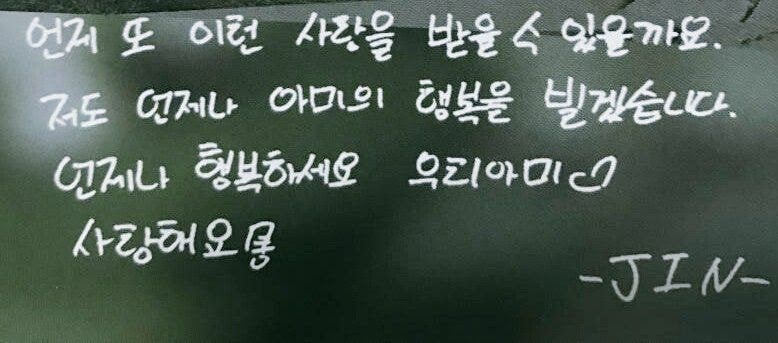 언제 또 이런 사랑을 받을 수 있을까요.
저도 언제나 아미의 행복을 빌겠습니다.
언제나 행복하세요 우리아미♡
사랑해요
-JIN-